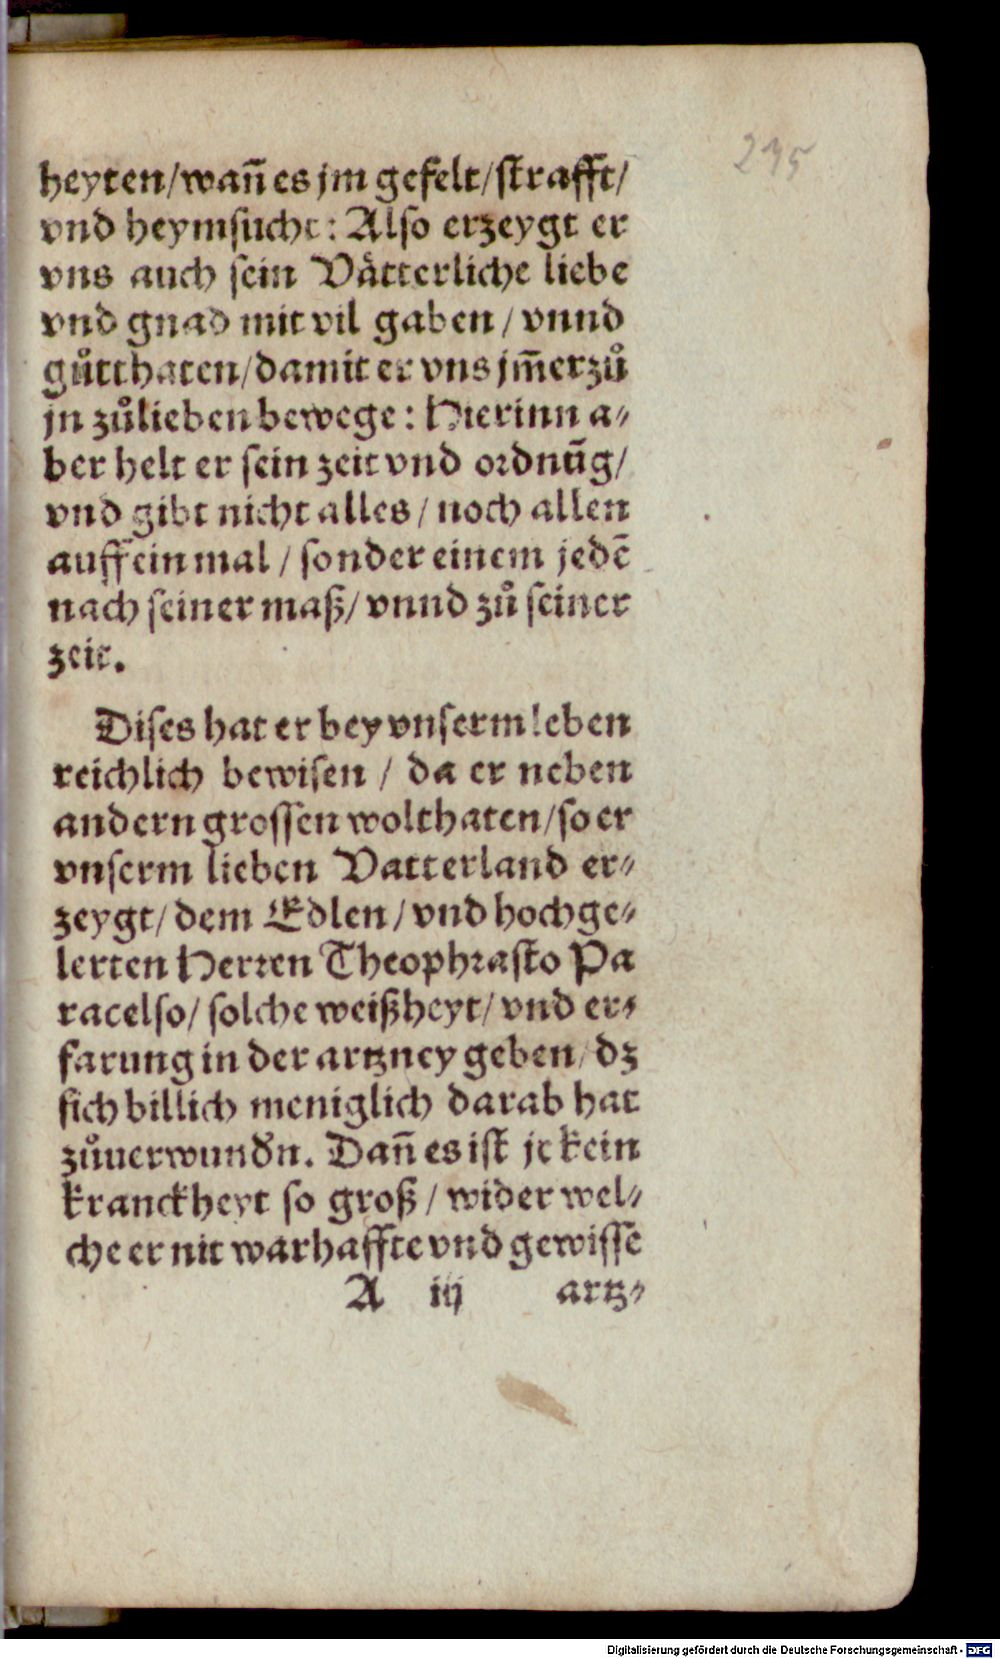 235
heyten/wañ es jm gefelt/strafft/
vnd heymsucht: Also erzeygt er
vns auch sein Vätterliche liebe
vnd gnad mit vil gaben / vnnd
gůtthaten/damit er vns jm̃erzů
jn zůlieben bewege: Hierinn a⸗
ber helt er sein zeit vnd ordnũg/
vnd gibt nicht alles / noch allen
auff ein mal / sonder einem jedẽ
nach seiner maß/ vnnd zů seiner
zeit.
Dises hat er bey vnserm leben
reichlich bewisen / da er neben
andern grossen wolthaten/so er
vnserm lieben Vatterland er⸗
zeygt/dem Edlen/vnd hochge⸗
lerten Herren Theophrasto Pa
racelso/ solche weißheyt/ vnd er⸗
farung in der artzney geben/ dz
sich billich meniglich darab hat
zůuerwundn̄. Dañ es ist je kein
kranckheyt so groß / wider wel⸗
che er nit warhaffte vnd gewisse
A iij artz⸗
Digitalisierung gefördert durch die Deutsche Forschungsgemeinschaft - DFG